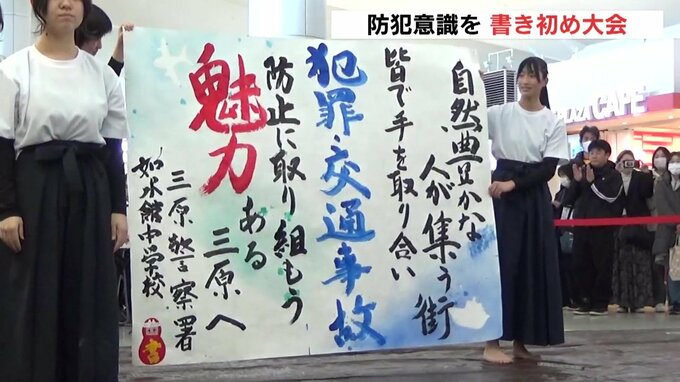 防犯意識を 書き初め大会
PLAZA CAFE
自然豊かな
人が集う街
皆で手を取り合い
犯罪・交通事故
防止に取り組もう
魅力ある三原へ
三原警察署
如水館中学校